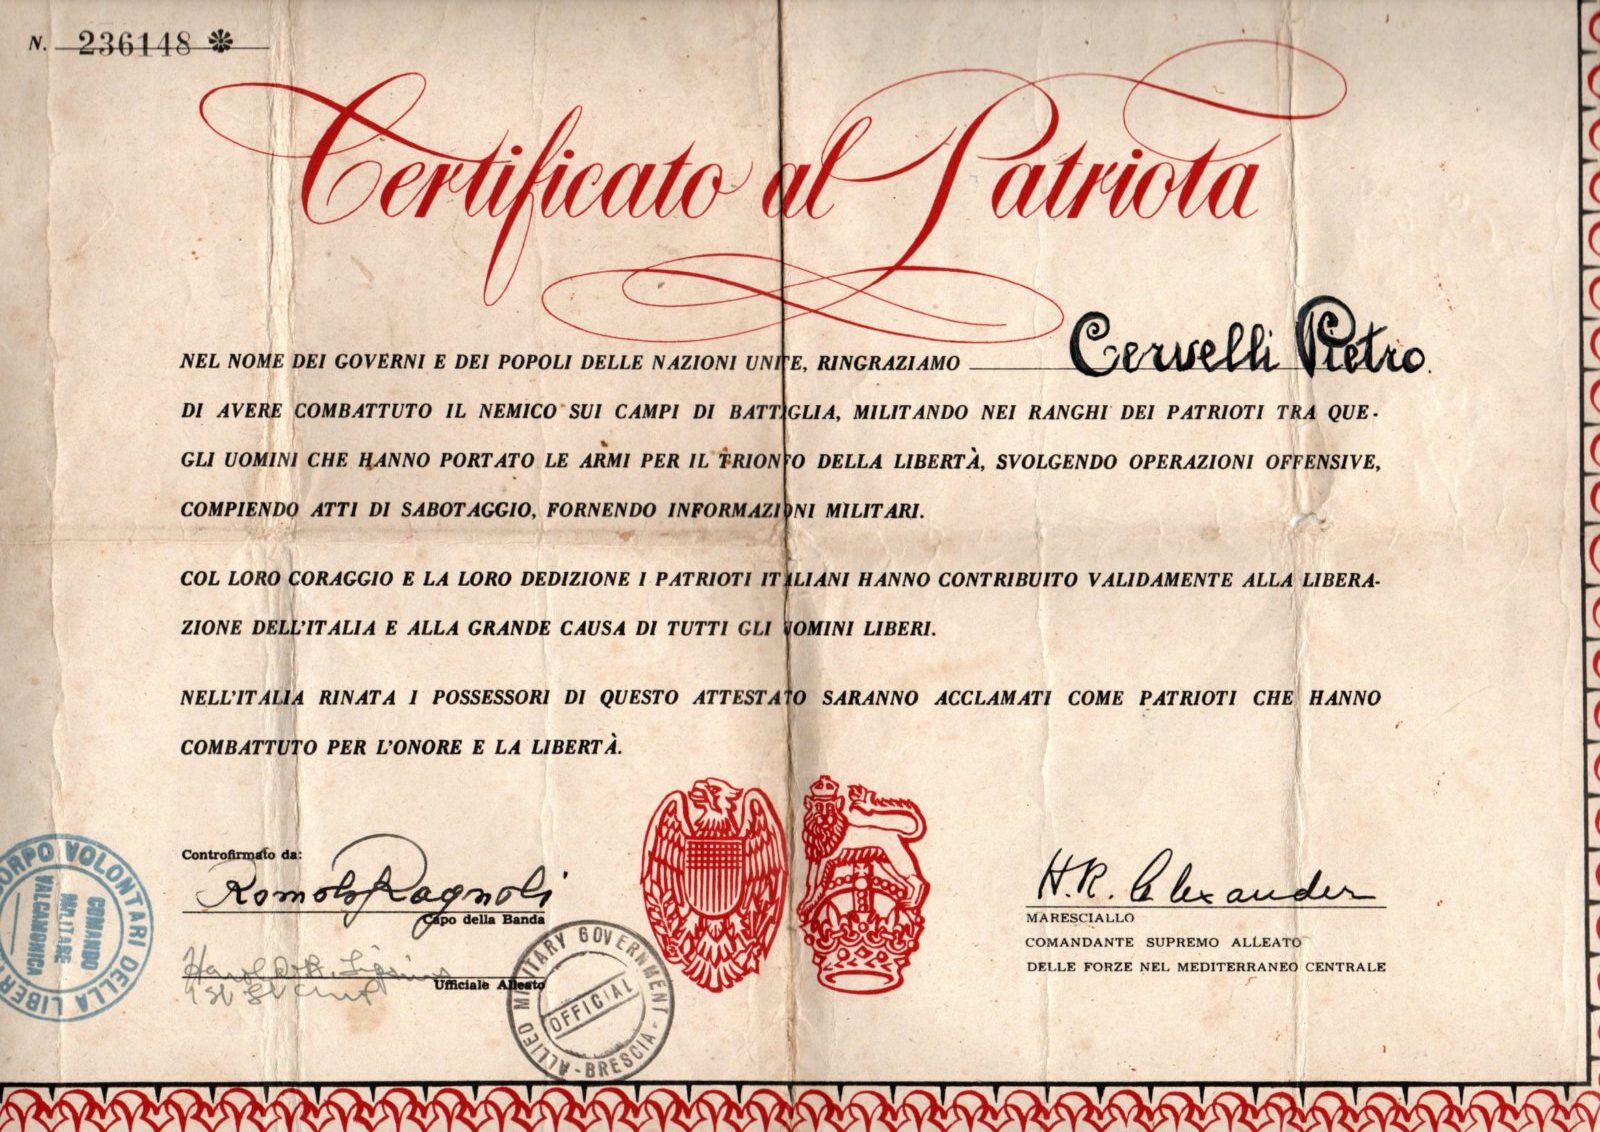 N. 236148 *
Certificato al Patriota
NEL NOME DEI GOVERNI E DEI POPOLI DELLE NAZIONI UNITE, RINGRAZIAMO Cervelli Pietro.
DI AVERE COMBATTUTO IL NEMICO SUI CAMPI DI BATTIGLIA, MILITANDO NEI RANGHI DEI PATRIOTI TRA QUE-
GLI UOMINI CHE HANNO PORTATO LE ARMI PER IL TRIONFO DELLA LIBERTÀ, SVOLGENDO OPERAZIONI OFFENSIVE,
COMPIENDO ATTI DI SABOTAGGIO, FORNENDO INFORMAZIONI MILITARI.
COL LORO CORAGGIO E LA LORO DEDIZIONE I PATRIOTI ITALIANI HANNO CONTRIBUITO VALIDAMENTE ALLA LIBERA-
ZIONE DELL'ITALIA E ALLA GRANDE CAUSA DI TUTTI GLI UOMINI LIBERI.
NELL'ITALIA RINATA I POSSESSORI DI QUESTO ATTESTATO SARANNO ACCLAMATI COME PATRIOTI CHE HANNO
COMBATTUTO PER L'ONORE E LA LIBERTÀ.
Controfirmato da:
Romolo Ragnoli
Capo della Banda
Harold R.
Ufficiale Alleato
1st Lt
CORPO VOLONTARI DELLA LIBERTÀ
COMANDO
MILITARE
VALCAMONICA
ALLIED MILITARY GOVERNMENT - BRESCIA -
OFFICIAL
H.R. Alexander
MARESCIALLO
COMANDANTE SUPREMO ALLEATO
DELLE FORZE NEL MEDITERRANEO CENTRALE